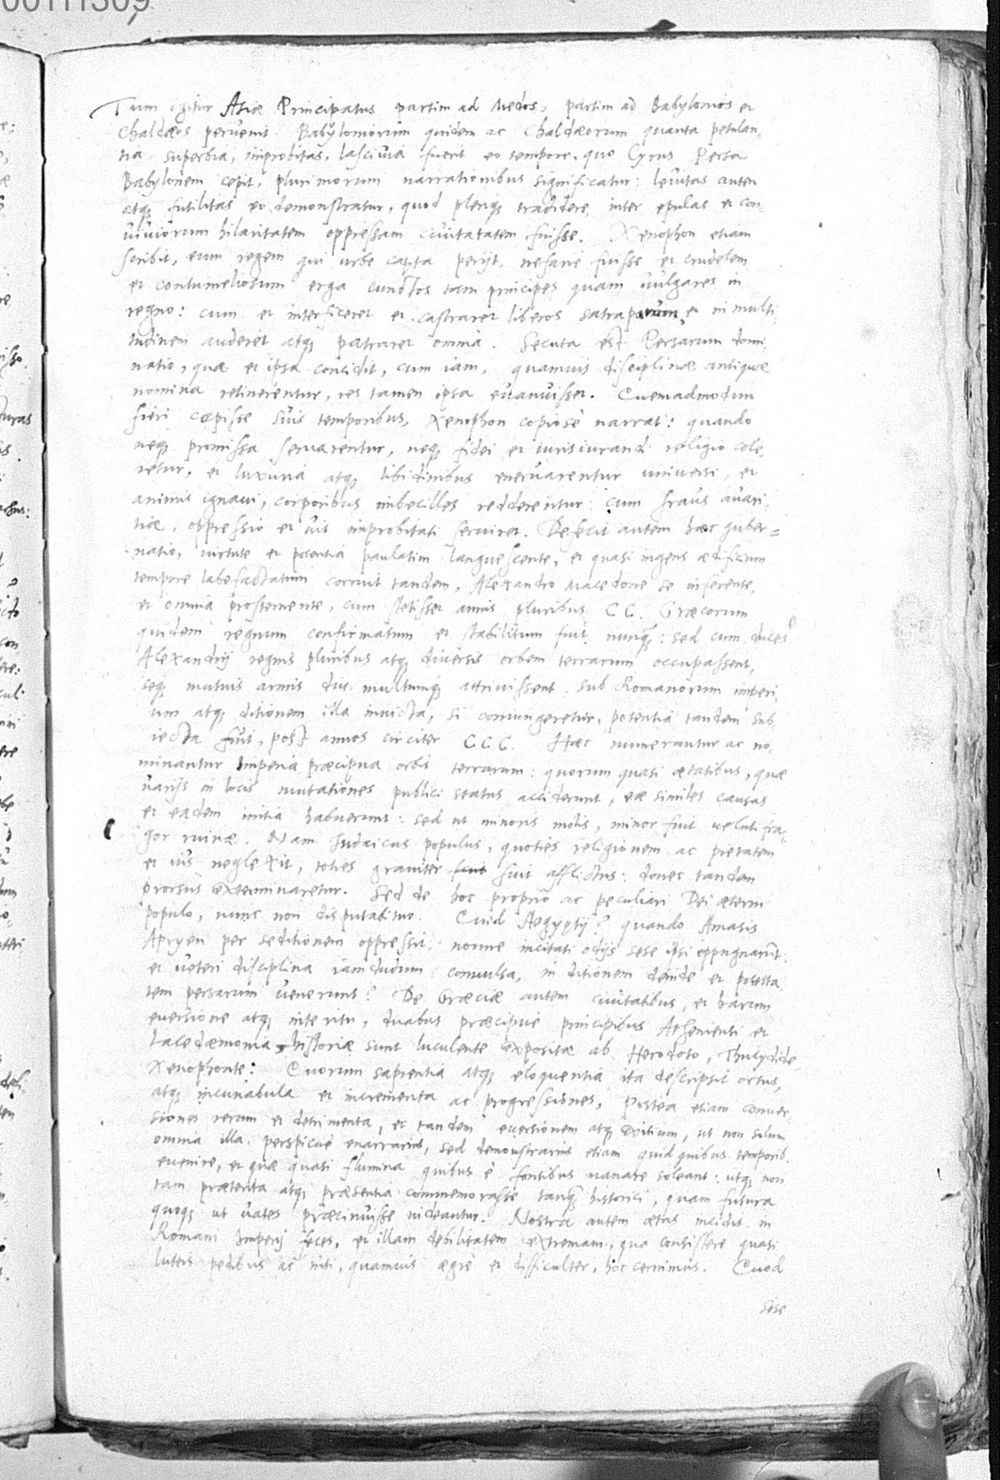 00111309
Tum igitur Asiæ Principatus partim ad Medos, partim ad Babylonios et
Chaldæos pervenit. Babyloniorum quidem ac Chaldæorum quanta petulan,
tia superbia, improbitas, lascivia fuerit eo tempore, quo Cyrus Persa
Babylonem cepit, plurimorum narrationibus significatur: levitas autem
atq; futilitas eo demonstratur, quod pleriq; tradidere, inter epulas et con,
viviorum hilaritatem oppressam civitatem fuisse. Xenophon etiam
scribit, eum regem qui urbe capta perijt, nefarie fuisse et crudelem
et contumeliosum erga cunctos tam principes quam vulgares in
regno: cum et interficeret et castraret liberos satraparum, et in multi,
tudinem auderet atq; patraret omnia. Secuta est Persarum domi,
natio, quæ et ipsa concidit, cum iam, quamvis disciplinæ antiquæ
nomina retinerentur, res tamen ipsa evanuisset. Quemadmodum
fieri cœpisse suis temporibus, Xenophon copiose narrat: quando
neq; promissa servarentur, neq; fidei et iurisiurandi religio cole,
retur, et luxuria atq; libidinibus enervarentur universi, et
animis ignavi, corporibus imbecilles redderentur: cum fraus avari,
tiæ, oppressio et vis improbitati serviret. Defecit autem hæc guber=
natio, virtute et potentia paulatim languescente, et quasi ingens ædificium
tempore labefactatum corruit tandem, Alexandro Macedone se inferente,
et omnia prosternente, cum stetisset annis pluribus CC. Græcorum
quidem regnum confirmatum et stabilitum fuit nunq̃: sed cum duces
Alexandrij regnis pluribus atq; diversis orbem terrarum occupassent,
seq; mutuis armis diu multumq; attrivissent, sub Romanorum imperi,
um atq; ditionem illa invicta, si coniungeretur, potentia tandem sub,
iecta fuit, post annos circiter CCC. Hæc numerantur ac no,
minantur Imperia præcipua orbis terrarum: quorum quasi ætatibus, quæ
varijs in locis mutationes publici status acciderunt, eæ similes causas
et eadem initia habuerunt: sed ut minoris molis, minor fuit veluti fra,
gor ruinæ. Nam Judaicus populus, quoties religionem ac pietatem
et ius neglexit, toties graviter fuit afflictus: donec tandem
prorsus exterminaretur. Sed de hoc proprio ac peculiari Dei æterni
populo, nunc non disputabitur. Quid Ægyptij? quando Amasis
Apryen per seditionem oppressit, nonne incitati odijs sese ipsi oppugnarũt:
et veteri disciplina iamdudum convulsa, in ditionem deinde et potesta,
tem persarum venerunt? De Græciæ autem civitatibus, et harum
eversione atq; interitu, duabus præcipue principibus Atheniensi et
Lacedæmonia, historiæ sunt luculente expositæ ab Herodoto, Thucydide,
Xenophonte: Quorum sapientia atq; eloquentia ita descripsit ortus,
atq; incunabula et incrementa ac progressiones, Postea etiam conver,
siones rerum et detrimenta, et tandem eversionem atq; exitium, ut non solum
omnia illa perspicue enarrarint, sed demonstrarint etiam quid quibus temporib.
evenire, et quæ quasi flumina quibus è fontibus manare soleant: utq; non
tam præterita atq; præsentia commemorasse tanq̃ historici, quam futura
quoq; ut vates præcinuisse videantur. Nostra autem ætas incidit in
Romani Imperij feces, et illam debilitatem extremam, qua consistere quasi
luteis pedibus ac niti, quamvis ægre et difficulter, hoc cernimus. Quod
sese